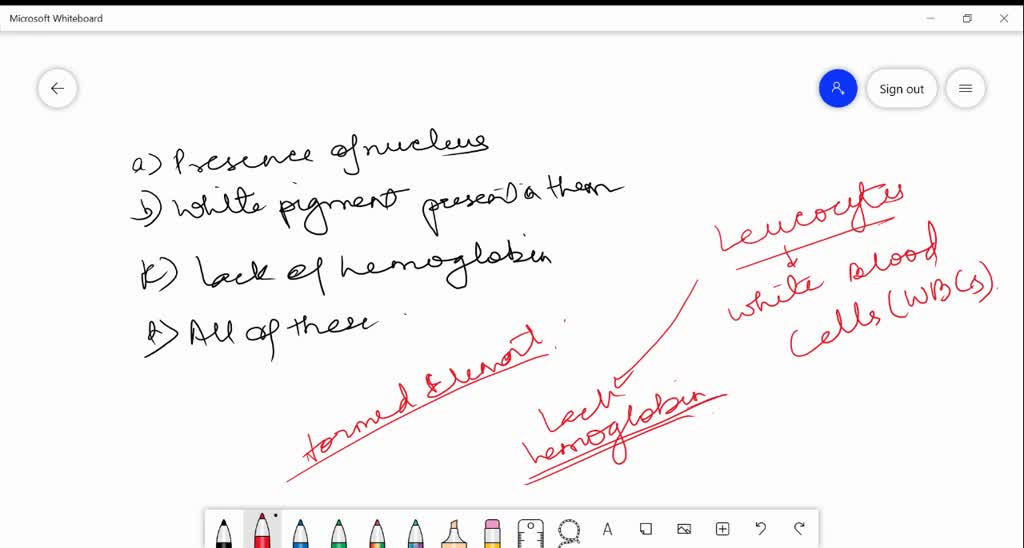 Microsoft Whiteboard
Sign out
a) Presence of nucleus
b) White pigment present in them
c) Lack of hemoglobin
d) All of these
Leucocytes
White Blood
Cells (WBCs).
formed Element.
Lack
hemoglobin
A